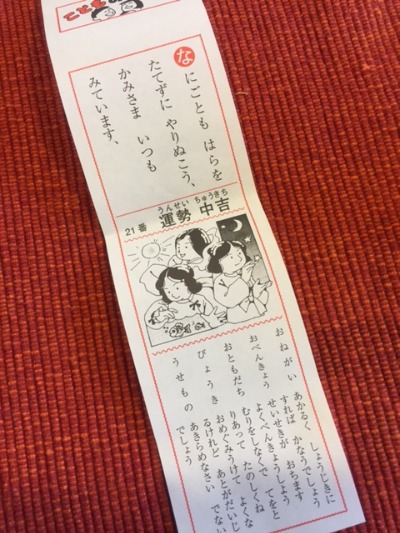 こども
なにごとも はらを
たてずに やりぬこう、
かみさま いつも
みています、
うんせい ちゅうきち
21番 運勢 中吉
おねがい あかるく しょうじきに
すれば かなうでしょう
おべんきょう せいせきが おちます
よくべんきょうしよう
おともだち むりをしなくて てをと
りあって たのしくね
びょうき おめぐみうけて よくな
るけれど あとがだいじ
うせもの あきらめなさい でない
でしょう